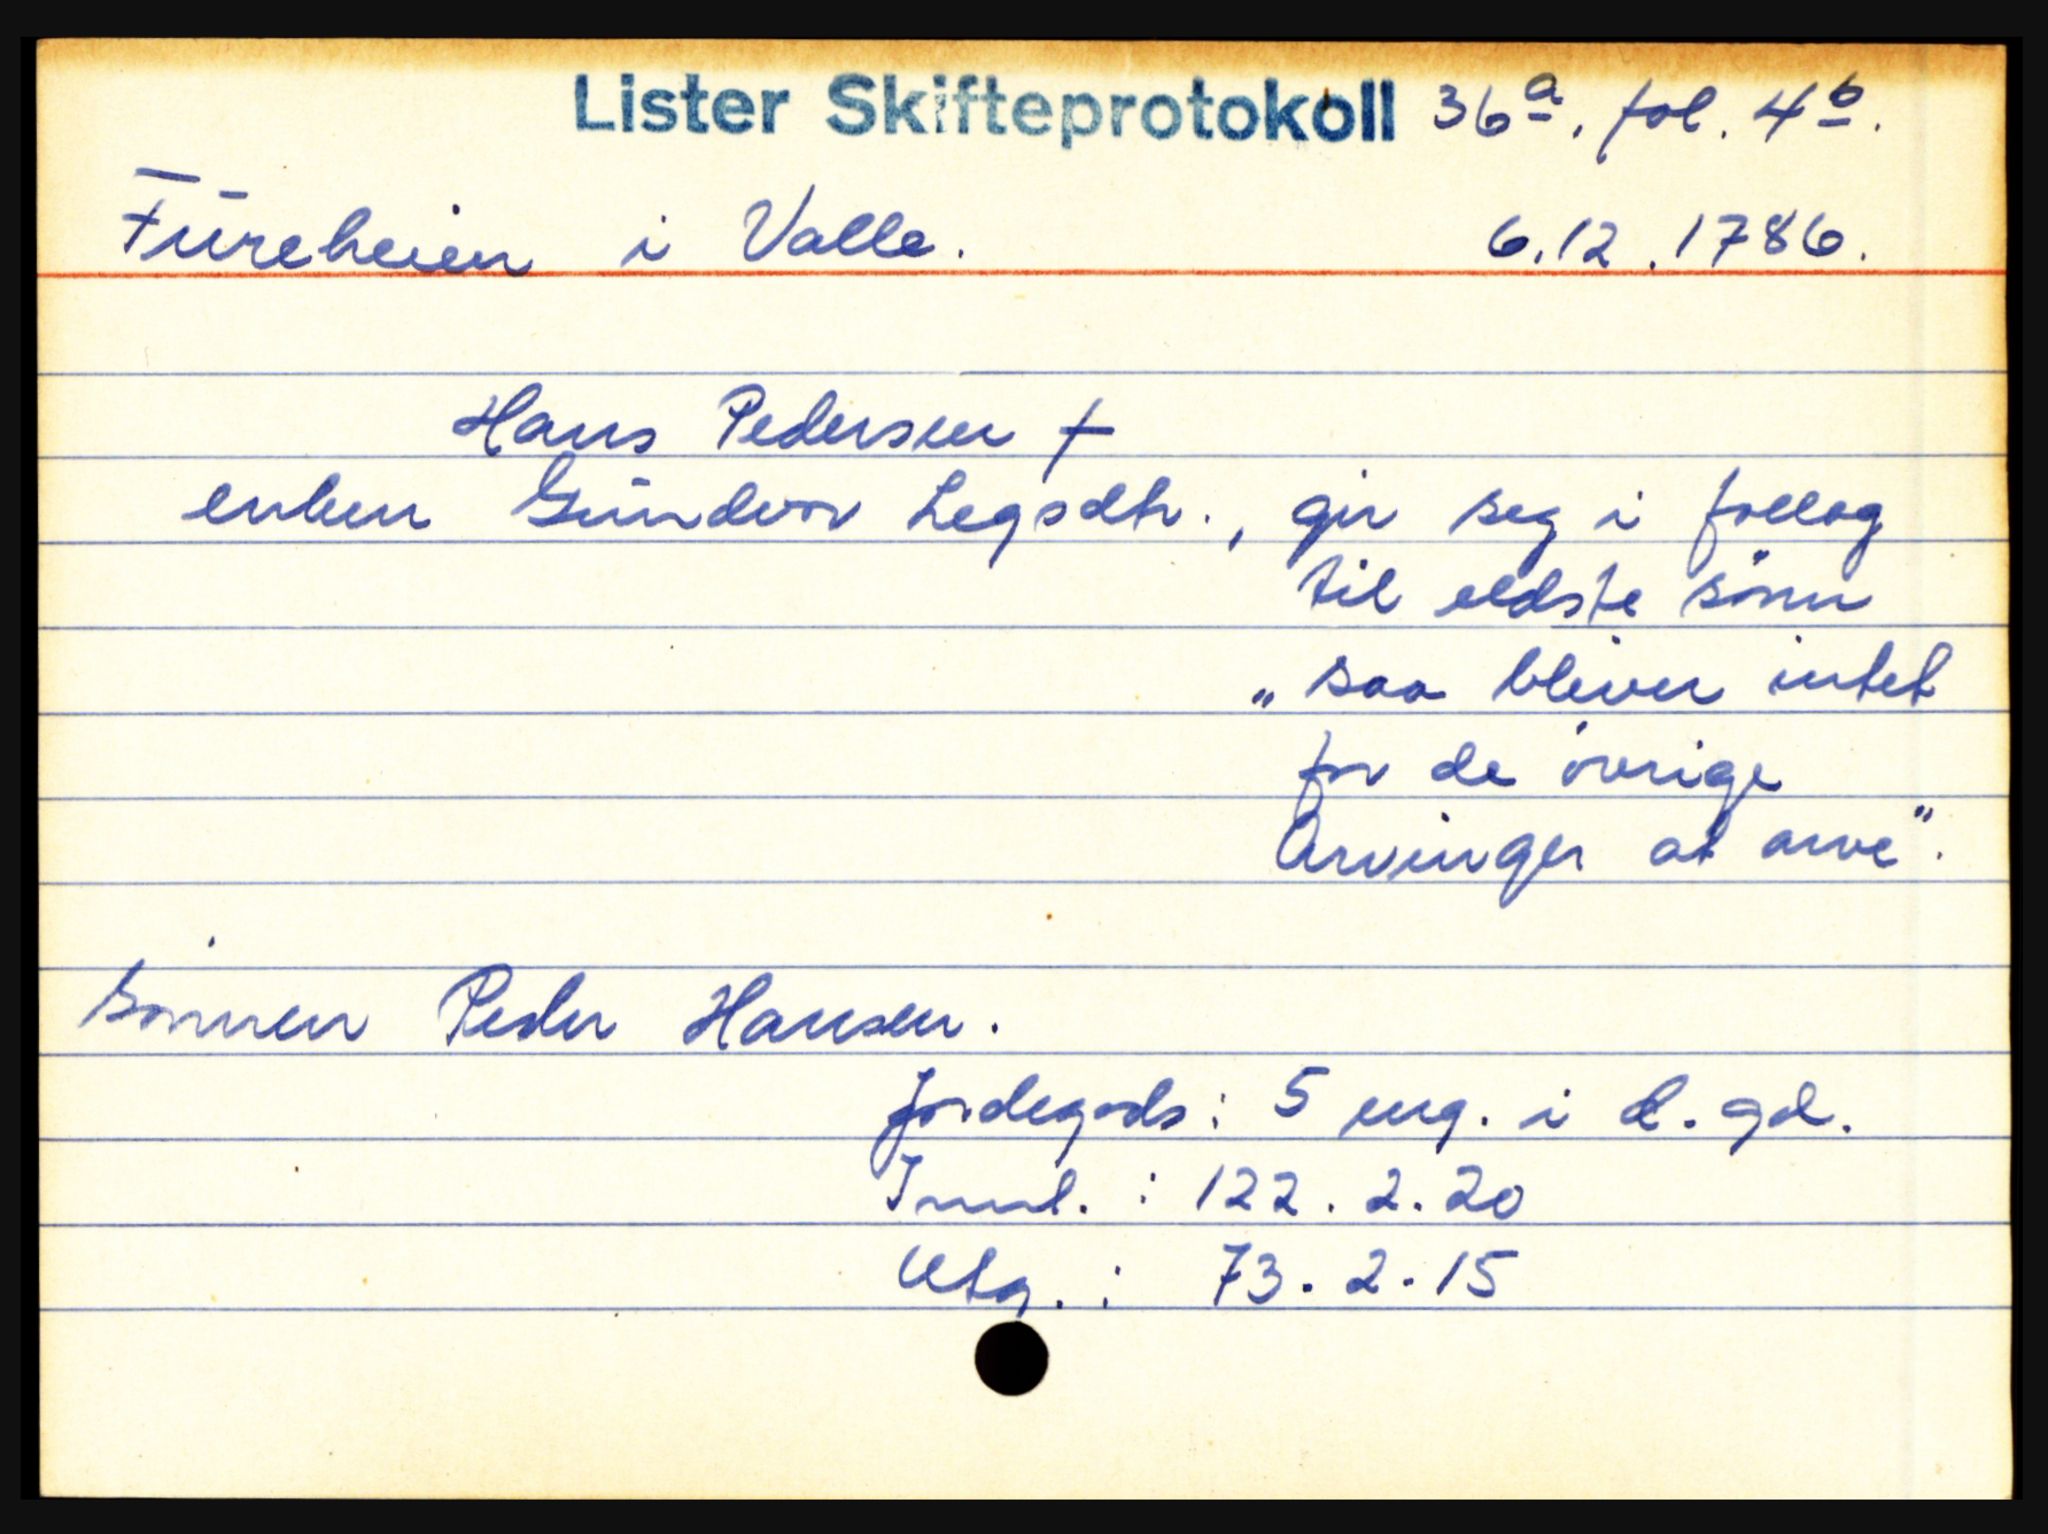 Lister Skifteprotokoll 36a. fol. 4b.
Fureheien i Valle. 6.12.1786.
Hans Pedersen †
enken Gundvor Legsdtr., gir seg i follog
til eldste sønn
„saa bliver intet
for de øvrige
Arvinger at arve".
sønnen Peder Hansen.
Jordegods: 5 eng. i d. gd.
Innt. : 122.2.20
Utg. : 73.2.15